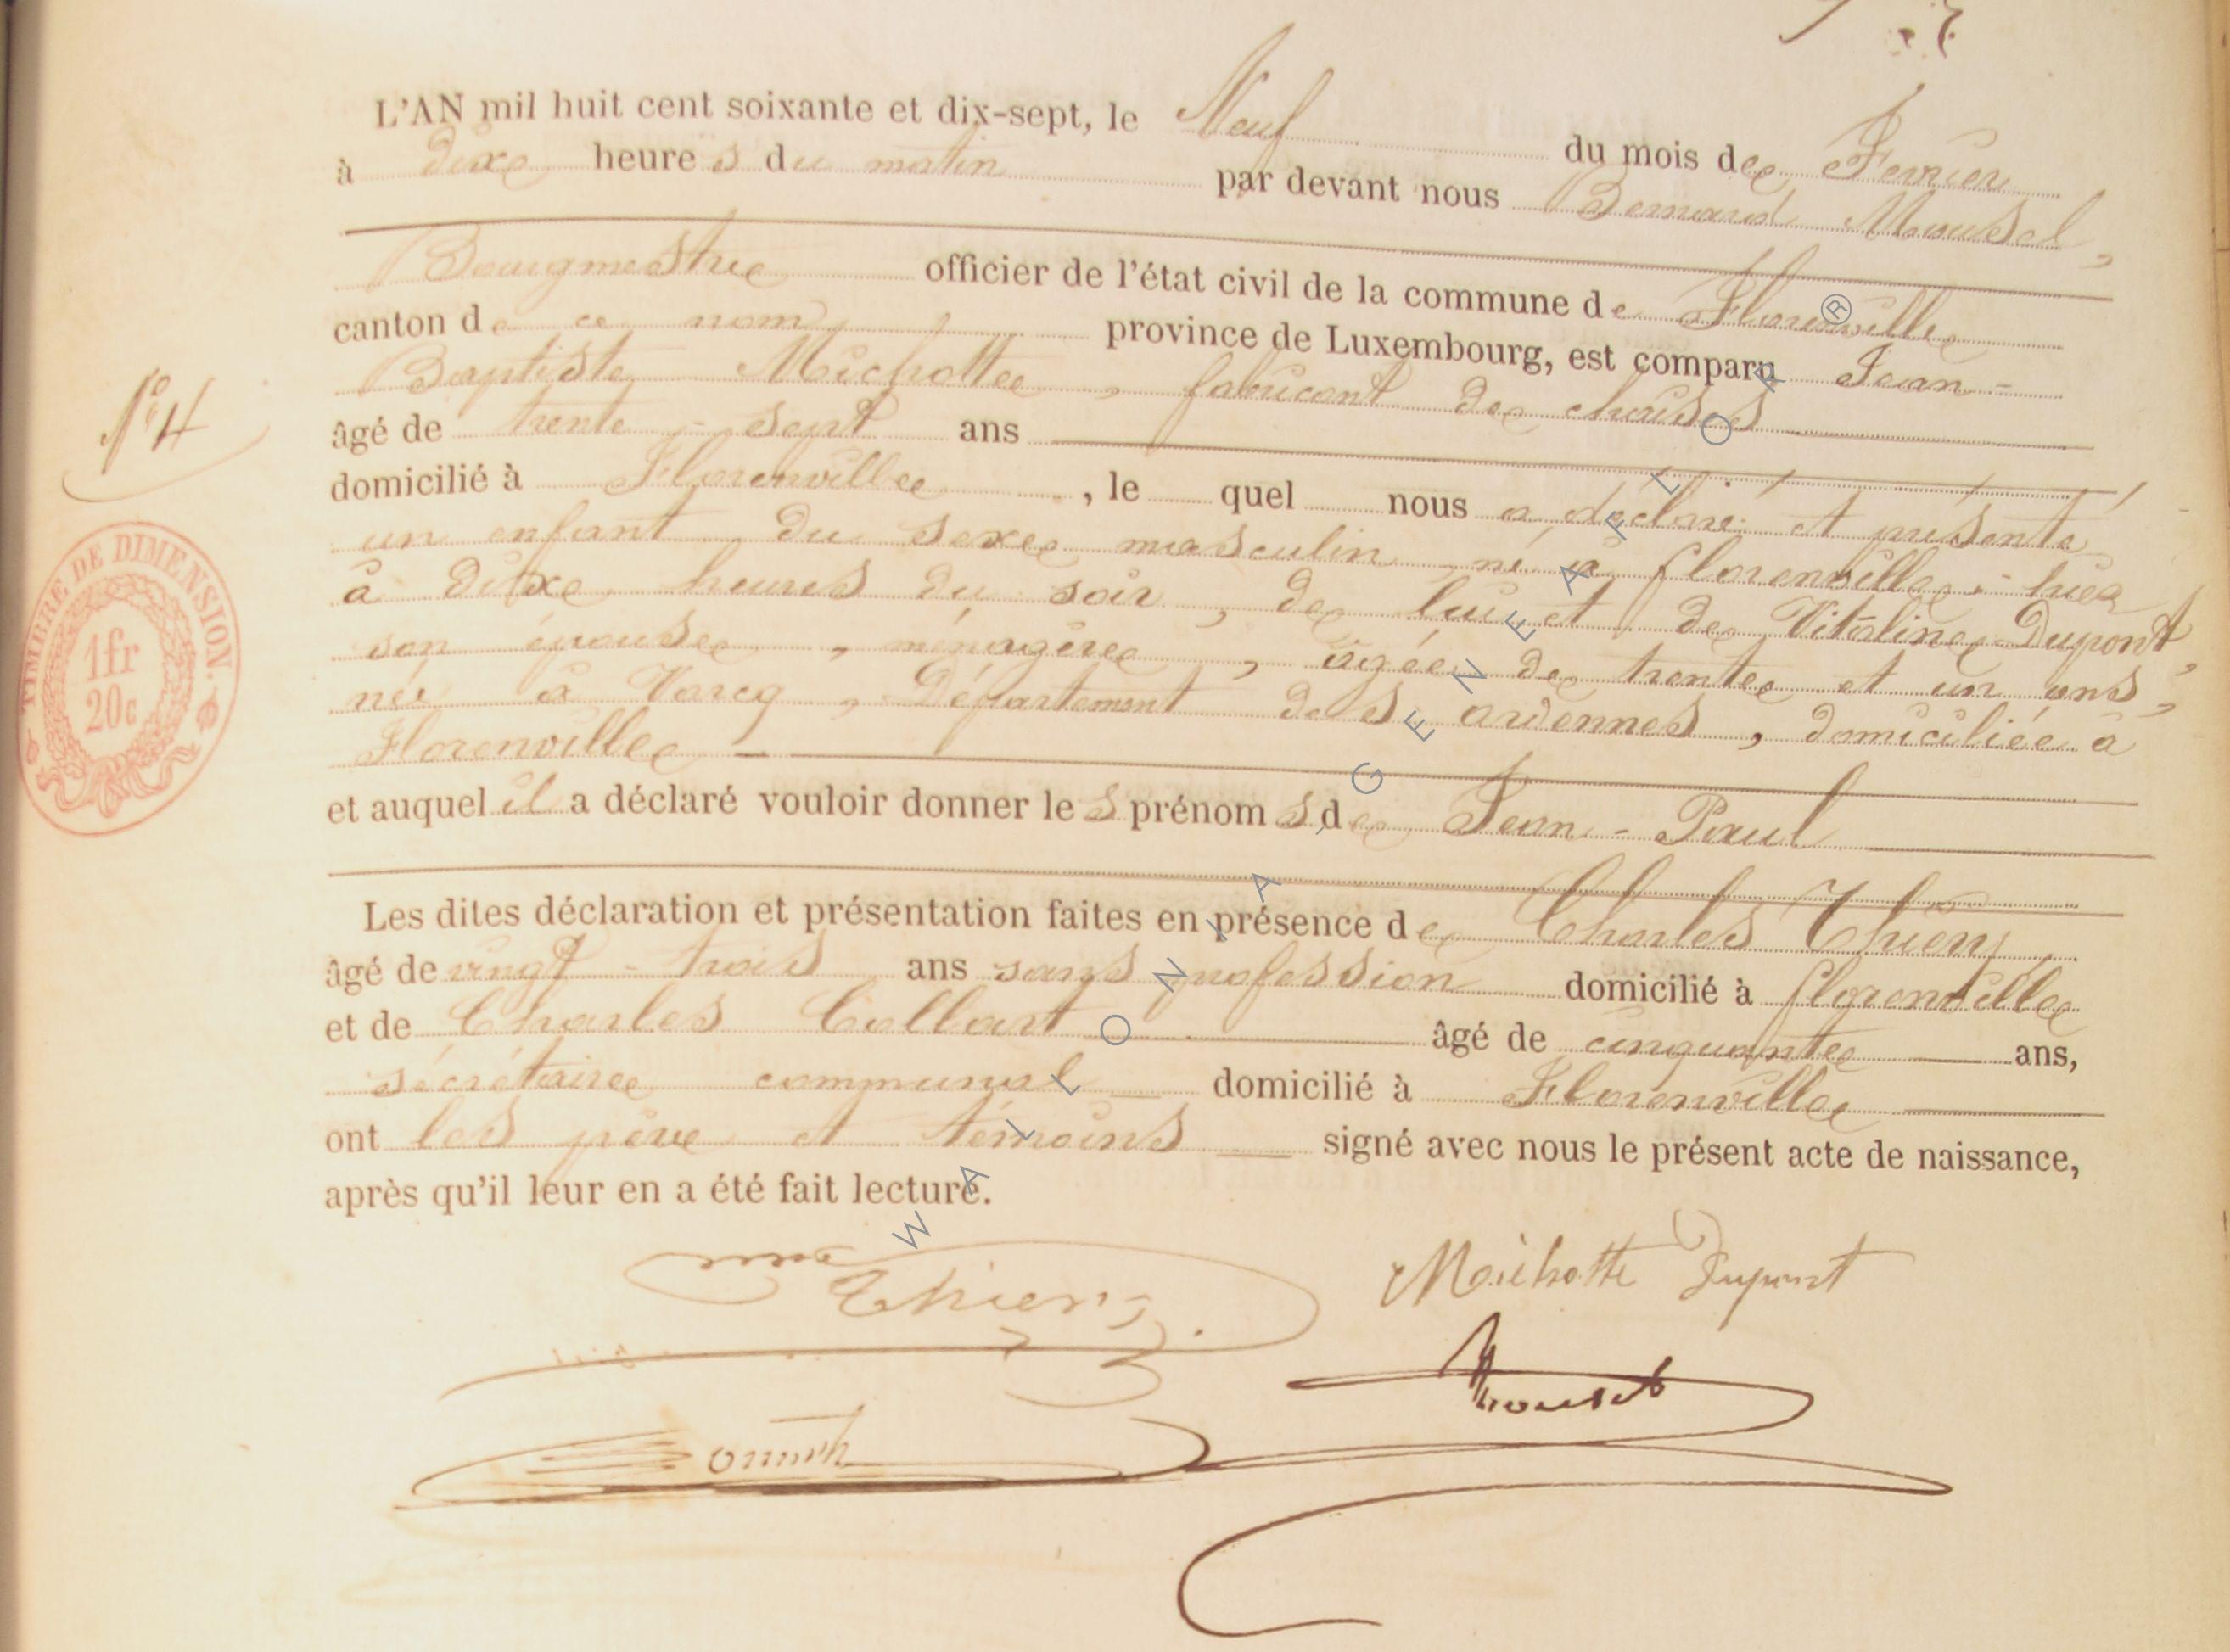 L'AN mil huit cent soixante et dix-sept, le Neuf du mois de Fevrier
à dixe heures du matin par devant nous Bernard Mousel,
Bourgmestre officier de l'état civil de la commune de Florenville
canton de ce nom, province de Luxembourg, est comparu Jean-
Baptiste Michotte, fabricant de chaises
âgé de trente-sept ans
domicilié à Florenville, le quel nous a déclaré et présenté
un enfant du sexe masculin, né à florenville, hier
à dixe heures du soir, de lui et de Vitaline Dupont,
son épouse, ménagère, âgée de trente et un ans,
née à Varcq, Département des ardennes, domiciliée à
Florenville
et auquel il a déclaré vouloir donner les prénoms de Jean-Paul
Les dites déclaration et présentation faites en présence de Charles Thiery
âgé de vingt-trois ans sans profession domicilié à florenville
et de Charles Collart âgé de cinquante ans,
sécrétaire communal domicilié à Florenville
ont les père et témoins signé avec nous le présent acte de naissance,
après qu'il leur en a été fait lecture.
N° 4
TIMBRE DE DIMENSION.
1fr
20c
Thiery
Michotte Dupont
Mousel
WALLONIA GENEAFLOR ®